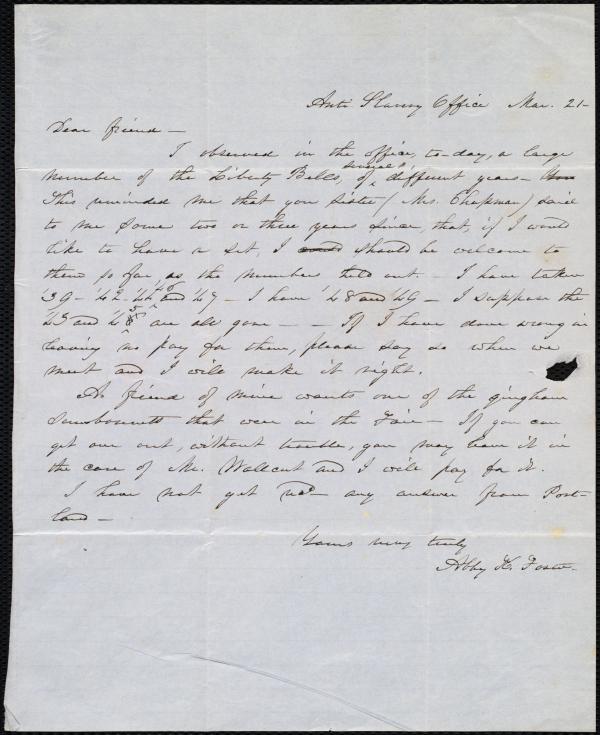 Anti Slavery Office Mar. 21-
Dear friend-
I observed in the office, to-day, a large
number of the Liberty Bells, of several different years-
This reminded me that your sister (Mrs. Chapman) said
to me some two or three years since, that, if I would
like to have a set, I should be welcome to
them so far as the numbers held out - I have taken
'39- '42- '44 '46 and '47- I have '48 and '49 - I suppose the
'43 and '45 are all gone - - If I have done wrong in
leaving no pay for them, please say so when we
meet and I will make it right.
A friend of mine wants one of the gingham
sunbonnets that were in the Fair- If you can
get one out, without trouble, you may leave it in
the care of Mr. Wallcut and I will pay for it.
I have not yet rec'd any answer from Port-
land-
Yours very truly
Abby K. Foster-